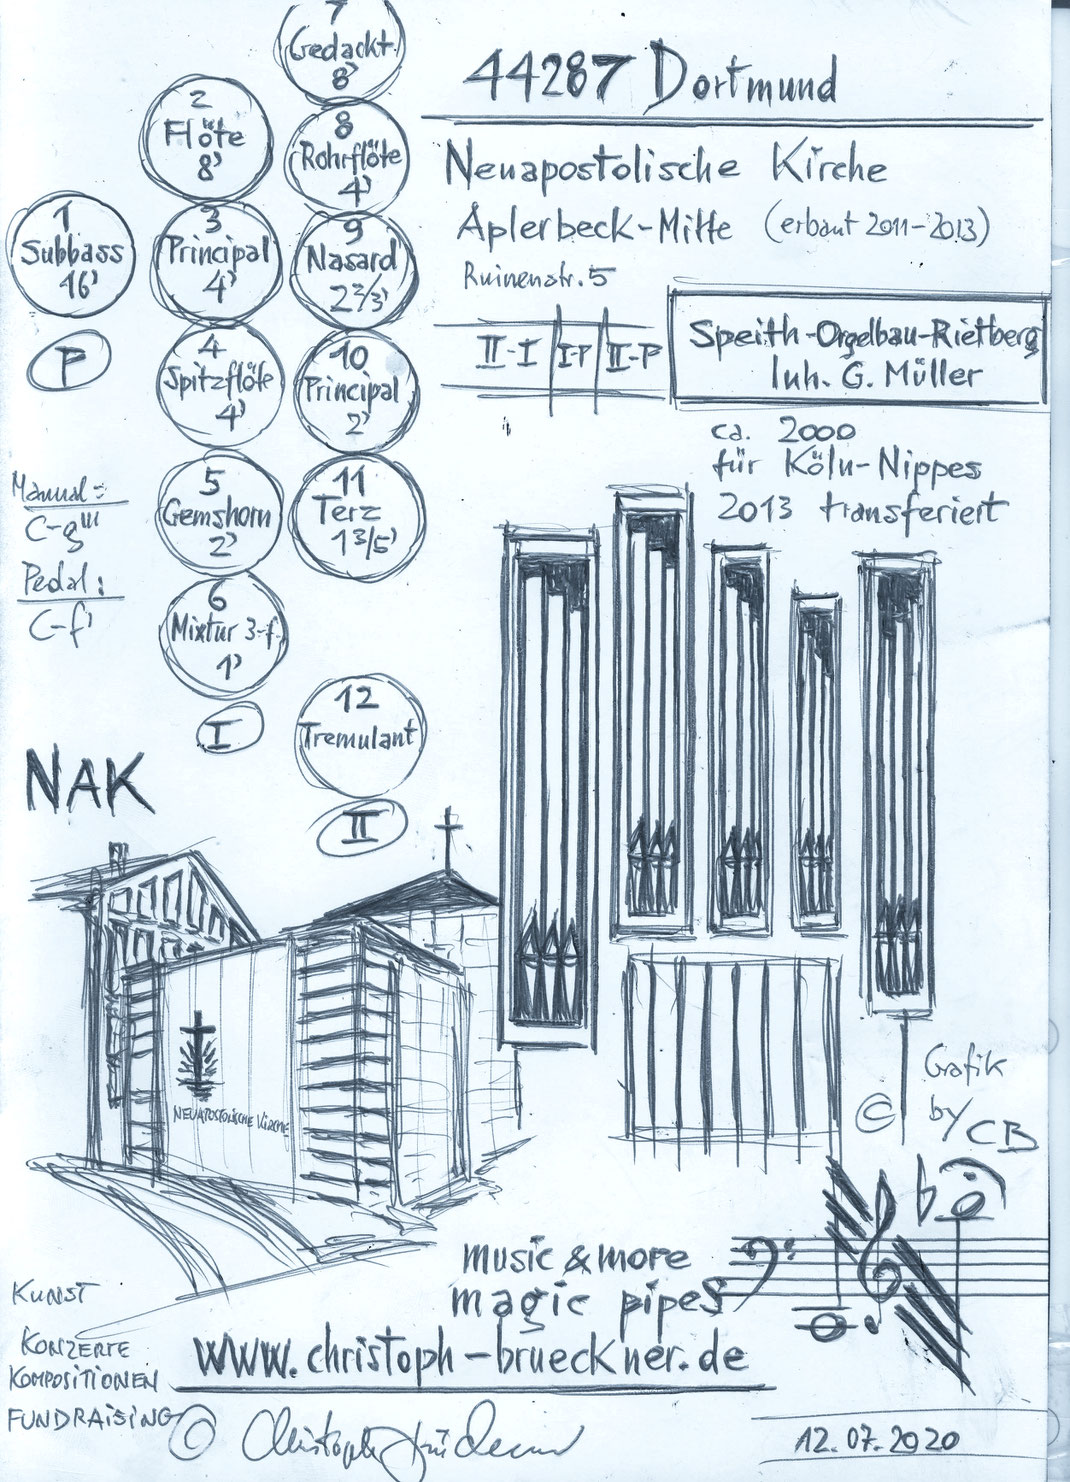 44287 Dortmund
Neuapostolische Kirche
Aplerbeck-Mitte (erbaut 2011-2013)
Ruinenstr. 5
II-I I-P II-P
Speith-Orgelbau-Rietberg
Inh. G. Müller
ca. 2000
für Köln-Nippes
2013 transferiert
1
Subbass
16'
P
2
Flöte
8'
3
Principal
4'
4
Spitzflöte
4'
5
Gemshorn
2'
6
Mixtur 3-f.
1'
I
7
Gedackt
8'
8
Rohrflöte
4'
9
Nasard
2 2/3'
10
Principal
2'
11
Terz
1 3/5'
12
Tremulant
II
Manual:
C-g'''
Pedal:
C-f'
NAK
NEUAPOSTOLISCHE KIRCHE
Grafik
© by CB
music & more
magic pipes
www.christoph-brueckner.de
KUNST
KONZERTE
KOMPOSITIONEN
FUNDRAISING
©
12.07.2020